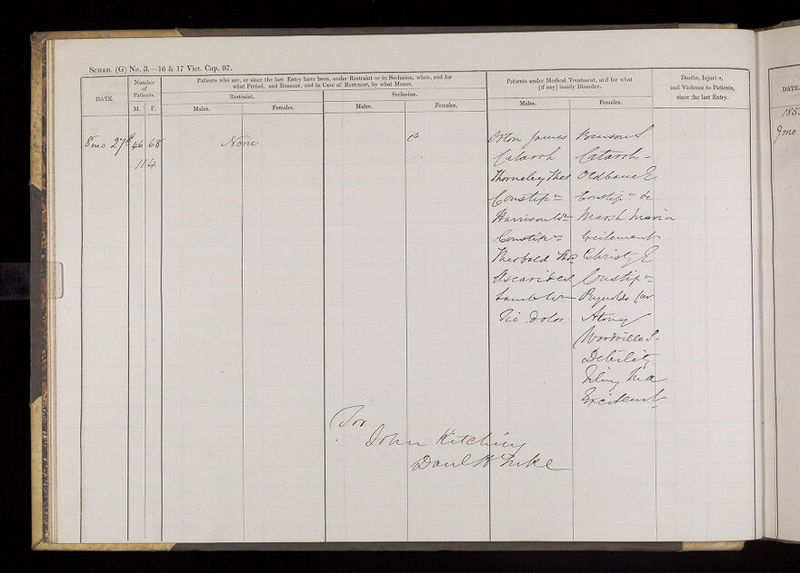 SCHED. (G) No. 3.—16 & 17 Vict. Cap. 97.
DATE.
Number of Patients.
M. F.
Patients who are, or since the last Entry have been, under Restraint or in Seclusion, when, and for
what Period, and Reasons, and in Case of Restraint, by what Means.
Restraint.
Seclusion.
Males.
Females.
Males.
Females.
Patients under Medical Treatment, and for what
(if any) bodily Disorder.
Males.
Females.
Deaths, Injuries,
and Violence to Patients,
since the last Entry.
8 mo 27th
46 68
114
None
Orton James
Catarrh
Thornely Thos
Constipn
Harrison Wm
Constipn
Theobald Thos
Ascarides
Lamb Wm
Tic Dolor
Benson S
Catarrh
Oldham E
Constipn &c
Marsh Maria
Excitement
Christy E
Constipn
Reynolds Car
Atony
Debility
Excitement
for
John Kitching
Danl H Tuke
DATE.
185
9 mo